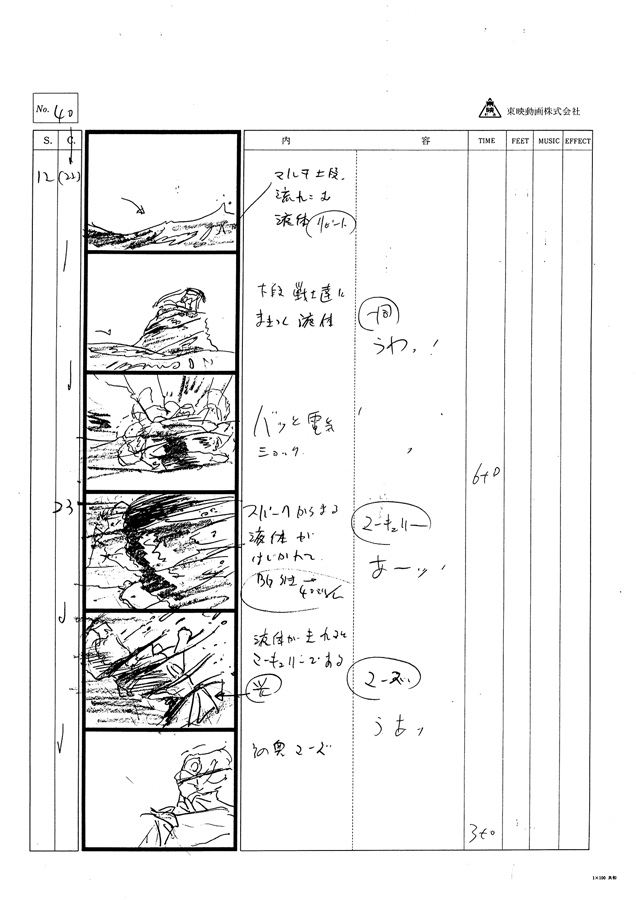 No. 40
東映動画株式会社
S. C. 内 容 TIME FEET MUSIC EFFECT
12 (22)
流れこむ
液体
下段 戦士達に
まきつく 液体
一同
うわっ!
バッと電気
ショック.
6+0
23
スパークからまる
液体が
はじかれて
マーキュリー
あーッ!
液体が
マーキュリーである
マーズ
うあッ
その奥マーズ
3+0